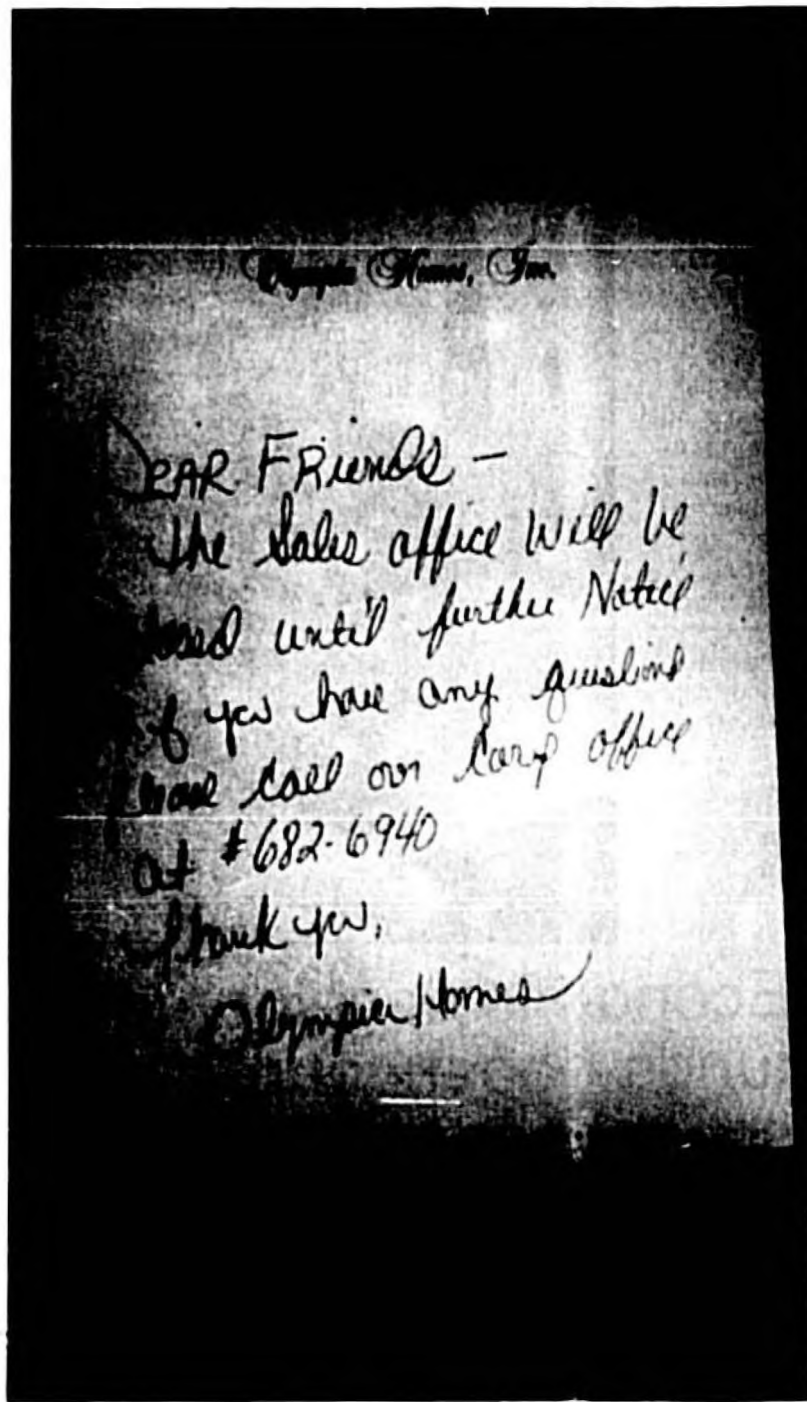 Olympia Homes, Inc.
DEAR FRiends -
The Sales office Will be
closed until further Notice
if you have any questions
please call our Corp office
at #682-6940
Thank you,
Olympia Homes